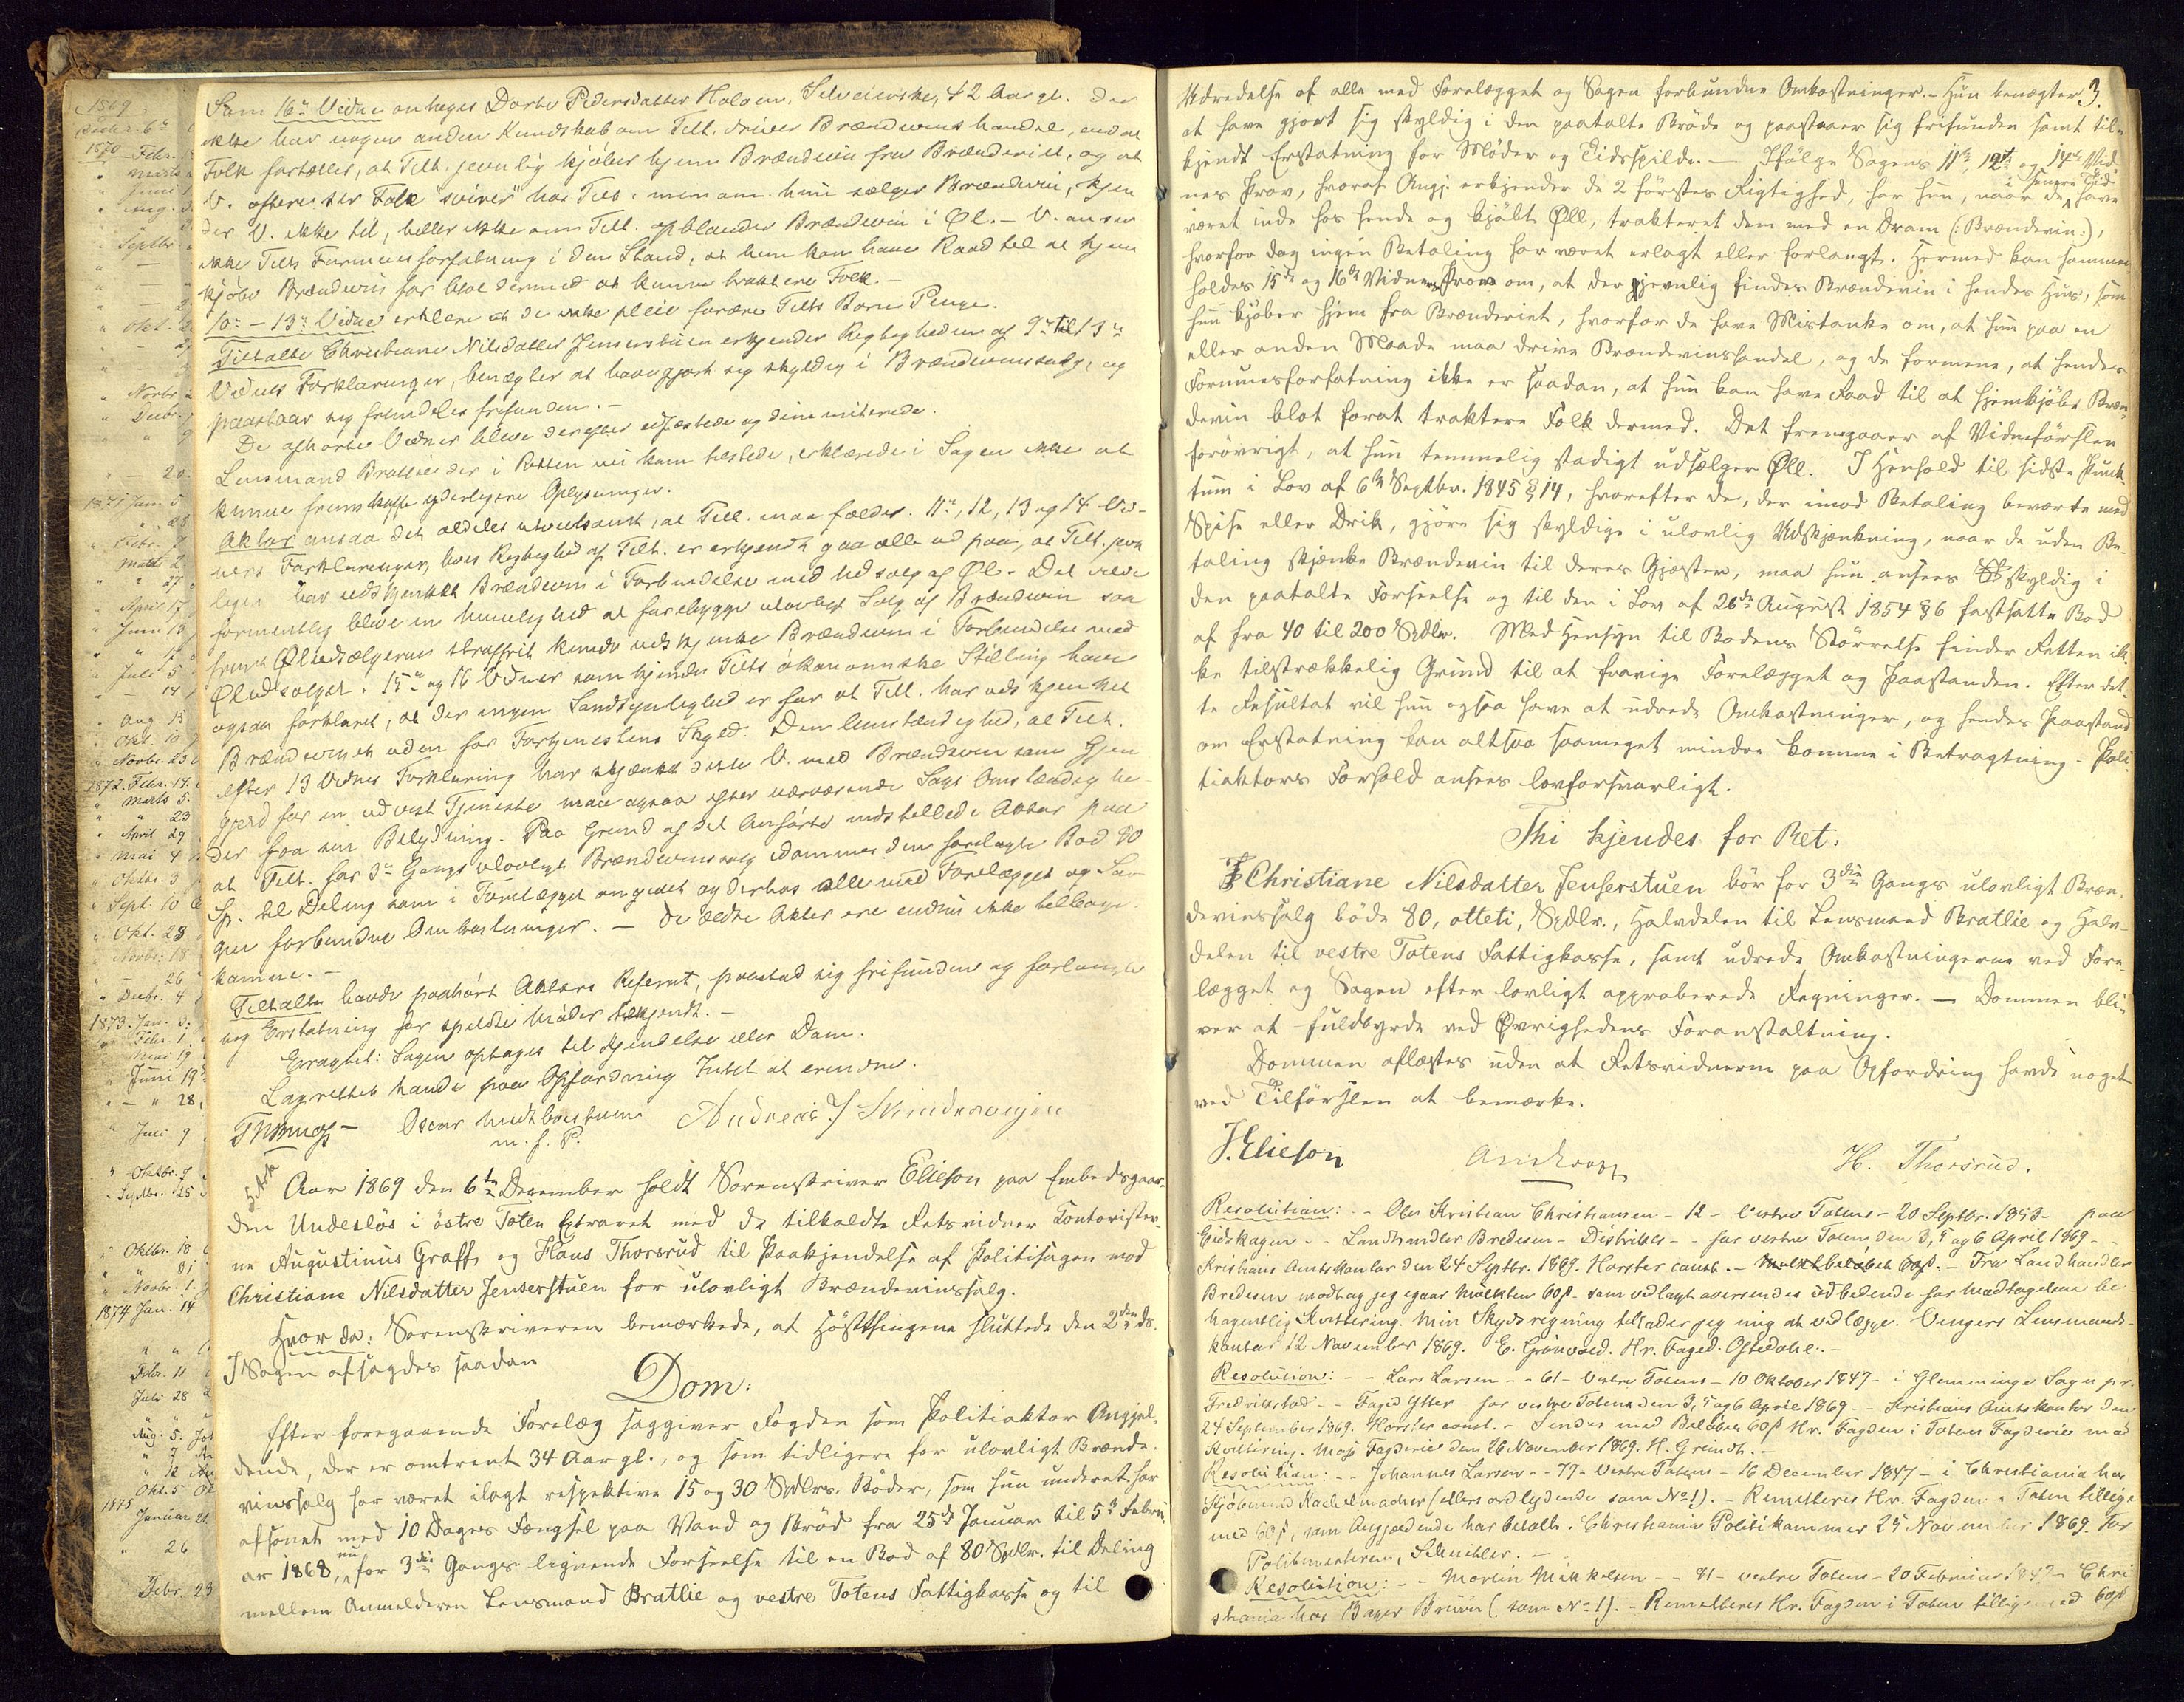 1869
Decbr. 6
1870 Febr.
" Marts
" Juni
" Aug.
" Septbr.
" Okt.
" Novbr.
" Decbr.
" — 20
1871 Jan. 5
" " 28
" Febr. 7
" Marts 2
" " 27
" April 17
" Juni 13
" Juli 5
" — 14
" Aug 15
" Okt. 10
" Novbr. 23
1872 Febr. 14
" Marts 5
" " 23
" April 29
" Mai 4
" Oktbr. 3
" Sept. 10
" Okt. 28
" Novbr. 18
" — 26
" Decbr. 4
1873 Jan. 3
" Febr. 1
" Mai 19
" Juni 19
" — " 28
" Juli 9
" Oktbr. 7
" Septbr. 25
" Oktbr. 18
" " 31
" Novbr. 1
1874 Jan. 14
Febr. 11
Juli 28
Aug. 5
" 7
" 12
Okt. 5
1875 Januar 21
" 26
Febr. 23
Som 16de Vidne antages Dorte Pedersdatter Holoen, Selveierske, 42 Aar gl. der
ikke har nogen anden Kundskab om Tilt. driver Brændevinshandel, end at
Folk fortæller, at Tilt. jevnlig kjøber hjem Brændevin fra Brænderiet, og at
V. oftere ser Folk "svirer" hos Tilt. men om hun sælger Brændevin, kjen
der V. ikke til, heller ikke om Tilt. opblander Brændevin i Øl. — V. anser
ikke Tilts Formuesforfatning i den Stand, at hun kan have Raad til at hjem
kjøbe Brændevin for blot dermed at kunne traktere Folk. —
10de – 13de Vidne erklære at de ikke pleie forære Tilts Børn Penge.
Tiltalte Christiane Nilsdatter Jenserstuen erkjender Rigtigheden af 9de til 13de
Vidnes Forklaringer, benægter at have gjort sig skyldig i Brændevinssalg, og
paastaar sig fremdeles frifunden. —
De afhørte Vidner bleve derefter edfæstede og dimitterede.
Lensmand Bratlie der i Retten nu kom tilstede, erklærede i Sagen ikke at
kunne fremskaffe yderligere Oplysninger.
Aktor ansaa det aldeles utvilsomt, at Tilt. maa fældes. 11te, 12, 13 og 14 Vid-
ners Forklaringer, hvis Rigtighed af Tilt. er erkjendt gaa alle ud paa, at Tilt. jevn
ligen har udskjænket Brændevin i Forbindelse med Udsalg af Øl. — Det vilde
formentlig blive en Umulighed at forebygge ulovligt Salg af Brændevin saa
fremt Øludsælgeren straffrit kunde udskjænke Brændevin i Forbindelse med
Øludsalget. 15de og 16 Vidner som kjender Tilts økonomiske Stilling have
ogsaa forklaret, at der ingen Sandsynlighed er for at Tilt. har udskjenket
Brændevinet uden for Fortjenestens Skyld. Den Omstændighed, at Tilt.
efter 13 Vidnes Forklaring har skjænket dette V. med Brændevin som Gjen
gjæld for en udvist Tjeneste maa ogsaa efter nærværende Sags Omstændighe-
der faa sin Betydning. Paa Grund af det Anførte indstillede Aktor paa
at Tilt. for 3die Gangs ulovligt Brændevinssalg idømmes den forelagte Bod 80
Sp. til Deling som i Forelægget angivet og derhos alle med Forelægget og Sa
gen forbundne Omkostninger. — De ældre Akter ere endnu ikke tilbage
komne. —
Tiltalte havde paahørt Aktors Referat, paastod sig frifunden og forlangte
sig Erstatning for spildte Møder tilkjendt. —
Eragtet: Sagen optages til Kjendelse eller Dom.
Lagretten havde paa Opfordring Intet at erindre.
Oscar
m. f. P.
Andreas J. Skinderoengen
Aar 1869 den 6te December holdt Sorenskriver Elieson paa Embedsgaar-
den Undeslös i östre Toten Extraret med de tilkaldte Retsvidner Contorister-
ne Augustinus Graff og Hans Thorsrud til Paakjendelse af Politisagen mod
Christiane Nilsdatter Jenserstuen for ulovligt Brændevinssalg.
Hvor da: Sorenskriveren bemærkede, at Hösttingene sluttede den 2den ds.
I Sagen afsagdes saadan
Dom:
Efter foregaaende Forelæg saggiver Fogden som Politiaktor Angjæl-
dende, der er omtrent 34 Aar gl., og som tidligere for ulovligt Brænde-
vinssalg har været ilagt respektive 15 og 30 Spdlrs. Böder, som hun underet har
afsonet med 10 Dages Fængsel paa Vand og Bröd fra 25de Januar til 5te Febru
ar 1868, nu for 3die Gangs lignende Forseelse til en Bod af 80 Spdlr. til Deling
mellem Anmelderen Lensmand Bratlie og vestre Totens Fattigkasse og til
3.
Udredelse af alle med Forelægget og Sagen forbundne Omkostninger. – Hun benægter
at have gjort sig skyldig i den paatalte Bröde og paastaaer sig frifunden samt til-
kjendt Erstatning for Möder og Tidsspilde. — Ifölge Sagens 11te, 12te og 14de Vid-
ners Prov, hvoraf Angj. erkjender de 2 förstes Rigtighed, har hun, naar de i senere Tid have
været inde hos hende og kjöbt Öll, trakteret dem med en Dram (: Brændevin:),
hvorfor dog ingen Betaling har været erlagt eller forlangt. Hermed kan sammen-
holdes 15de og 16de Vidners Prov om, at der jevnlig findes Brændevin i hendes Hus, som
hun kjöber hjem fra Brænderiet, hvorfor de have Mistanke om, at hun paa en
eller anden Maade maa drive Brændevinshandel, og de formene, at hendes
Formuesforfatning ikke er saadan, at hun kan have Raad til at hjemkjöbe Bræn-
devin blot forat traktere Folk dermed. Det fremgaaer af Vidneförslen
forövrigt, at hun temmelig stadigt udsælger Öll. I Henhold til sidste Punk-
tum i Lov af 6te Septbr. 1845 § 14, hvorefter de, der imod Betaling beværte med
Spise eller Drik, gjöre sig skyldige i ulovlig Udskjænkning, naar de uden Be-
taling skjænke Brændevin til deres Gjæster, maa hun ansees skyldig i
den paatalte Forseelse og til den i Lov af 26de August 1854 § 6 fastsatte Bod
af fra 40 til 200 Spdlr. Med Hensyn til Bodens Störrelse finder Retten ik-
ke tilstrækkelig Grund til at fravige Forelægget og Paastanden. Efter det-
te Resultat vil hun ogsaa have at udrede Omkostninger, og hendes Paastand
om Erstatning kan altsaa saameget mindre komme i Betragtning. – Poli-
tiaktors Forhold ansees lovforsvarligt.
Thi kjendes for Ret:
Christiane Nilsdatter Jenserstuen bör for 3die Gangs ulovligt Bræn-
devinssalg böde 80, otteti, Spdlr., Halvdelen til Lensmand Bratlie og Halv-
delen til vestre Totens Fattigkasse, samt udrede Omkostningerne ved Fore-
lægget og Sagen efter lovligt approberede Regninger. — Dommen bli-
ver at fuldbyrde ved Övrighedens Foranstaltning.
Dommen oplæstes uden at Retsvidnerne paa Opfordring havde noget
ved Tilförslen at bemærke.
J. Elieson
H. Thorsrud.
Resolution: – – Ole Kristian Christiansen – 12 – Vestre Totens – 20 Septbr. 1848 – paa
Eidskogen – – Landhandler Bredesen – Distrikts – – for vestre Toten den 3, 5 og 6 April 1869 – –
Kristians Amtskontor den 24 Septbr. 1869. Horster const. – Mulktbeløbet 60 β. – Fra Landhandler
Bredesen modtog jeg igaar Mulkten 60 β. som vedlagt oversendes udbedende for Modtagelsen be-
hagentlig Kvittering. Min Skydsregning tillader jeg mig at vedlægge. Vingers Lensmands-
kontor 12 November 1869. E. Grønvold. Hr. Foged Oftedahl. –
Resolution: – – Lars Larsen – – 61 – Vestre Totens – 10 Oktober 1847 – i Glemminge Sogn pr.
Fredrikstad – – Foged Ytter for vestre Toten den 3, 5 og 6 April 1869 – – Kristians Amtskontor den
24 September 1869. Horster const. – Sendes med Beløbet 60 β Hr. Fogden i Totens Fogderie mod
Kvittering. Moss Fogderie den 26 November 1869. H. Greindh. –
Resolution: – – Johannes Larsen – – 79 – Vestre Totens – 16 December 1847 – i Christiania hos
Kjøbmand Kachelmacher (ellers ordlydende som No 1). – Remitteres Hr. Fogden i Toten tillige
med 60 β, som Angjældende har betalt. Christiania Politikammer 25 November 1869. For
Politimesteren, Schnitler. –
Resolution: – – Martin Mikkelsen – – 81 – vestre Totens – 20 Februar 1847 – Chri
stiania hos Bager Bruun (som No 1). – Remitteres Hr. Fogden i Toten tillige med 60 β